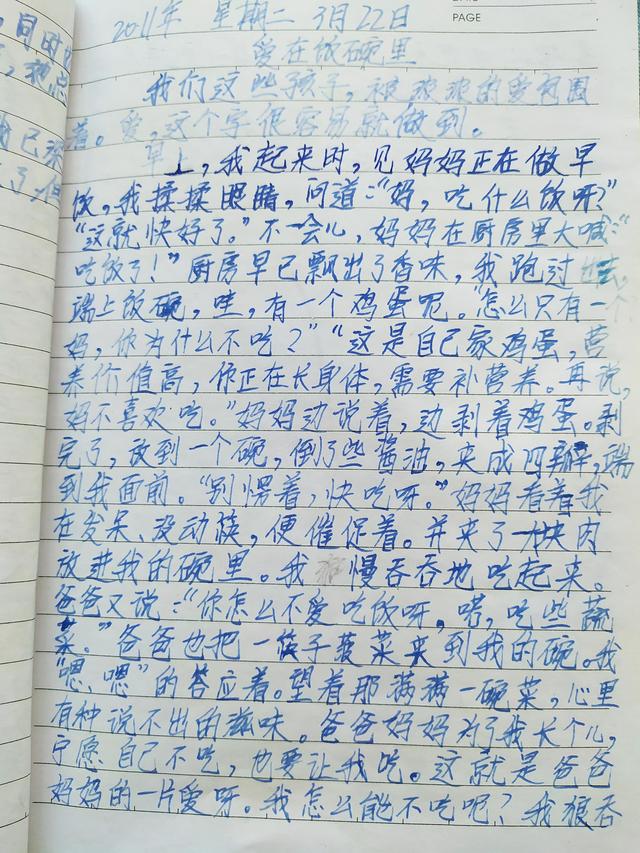 PAGE
2011年 星期二 3月22日
爱在饭碗里
我们这些孩子,被浓浓的爱包围
着。爱,这个字很容易就做到。
早上,我起来时,见妈妈正在做早
饭,我揉揉眼睛,问道:“妈,吃什么饭呀?”
“这就快好了。”不一会儿,妈妈在厨房里大喊:“
吃饭了!”厨房早已飘出了香味,我跑过
端上饭碗,哇,有一个鸡蛋呢。“怎么只有一
妈,你为什么不吃?”“这是自己家鸡蛋,营
养价值高,你正在长身体,需要补营养。再说,
妈不喜欢吃。”妈妈边说着,边剥着鸡蛋。剥
完了,放到一个碗,倒了些酱油,夹成四瓣,端
到我面前。“别愣着,快吃呀。”妈妈看着我
在发呆、没动筷,便催促着。并夹了一块肉
放进我的碗里。我慢吞吞地吃起来。
爸爸又说:“你怎么不爱吃饭呀,喏,吃些蔬
菜。”爸爸也把一筷子菠菜夹到我的碗。我
“嗯、嗯”的答应着。望着那满满一碗菜,心里
有种说不出的滋味。爸爸妈妈为了我长个儿,
宁愿自己不吃,也要让我吃。这就是爸爸
妈妈的一片爱呀。我怎么能不吃呢?我狼吞